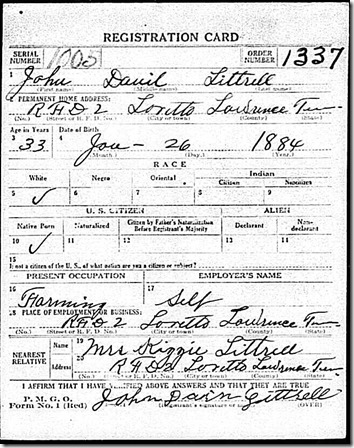 REGISTRATION CARD
SERIAL NUMBER 1005 ORDER NUMBER 1337
1 John David Littrell
(First name) (Middle name) (Last name)
2 PERMANENT HOME ADDRESS:
R.F.D 2 Loretto Lawrence Tenn
(No.) (Street or R. F. D. No.) (City or town) (County) (State)
Age in Years Date of Birth
3 33 4 Jan - 26 1884
(Month.) (Day.) (Year.)
RACE
White Negro Oriental Indian
Citizen Noncitizen
5 ✓ 6 7 8 9
U. S. CITIZEN ALIEN
Native Born Naturalized Citizen by Father's Naturalization Before Registrant's Majority Declarant Non-declarant
10 ✓ 11 12 13 14
15
If not a citizen of the U. S., of what nation are you a citizen or subject?
PRESENT OCCUPATION EMPLOYER'S NAME
16 Farming 17 Self
18 PLACE OF EMPLOYMENT OR BUSINESS:
R.F.D 2 Loretto Lawrence Tenn
(No.) (Street or R. F. D. No.) (City or town) (County) (State)
NEAREST RELATIVE Name 19 Mrs Kizzie Littrell
Address 20 R F D 2 Loretto Lawrence Tenn
(No.) (City or town) (County) (State)
I AFFIRM THAT I HAVE VERIFIED ABOVE ANSWERS AND THAT THEY ARE TRUE
P. M. G. O.
Form No. 1 (Red) John Littrell
(Registrant's signature or mark) (OVER)